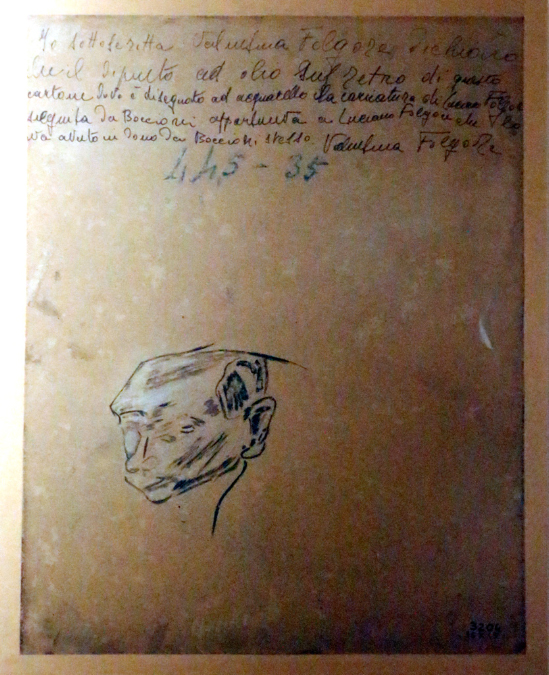 Io sottoscritta Valentina Folgore, dichiaro
che il dipinto ad olio sul retro di questo
cartone dov'è disegnato ad acquarello la caricatura di Luciano Folgore
eseguita da Boccioni appartenuta a Luciano Folgore che
l'aveva avuto in dono da Boccioni stesso. Valentina Folgore
445 - 35
3204